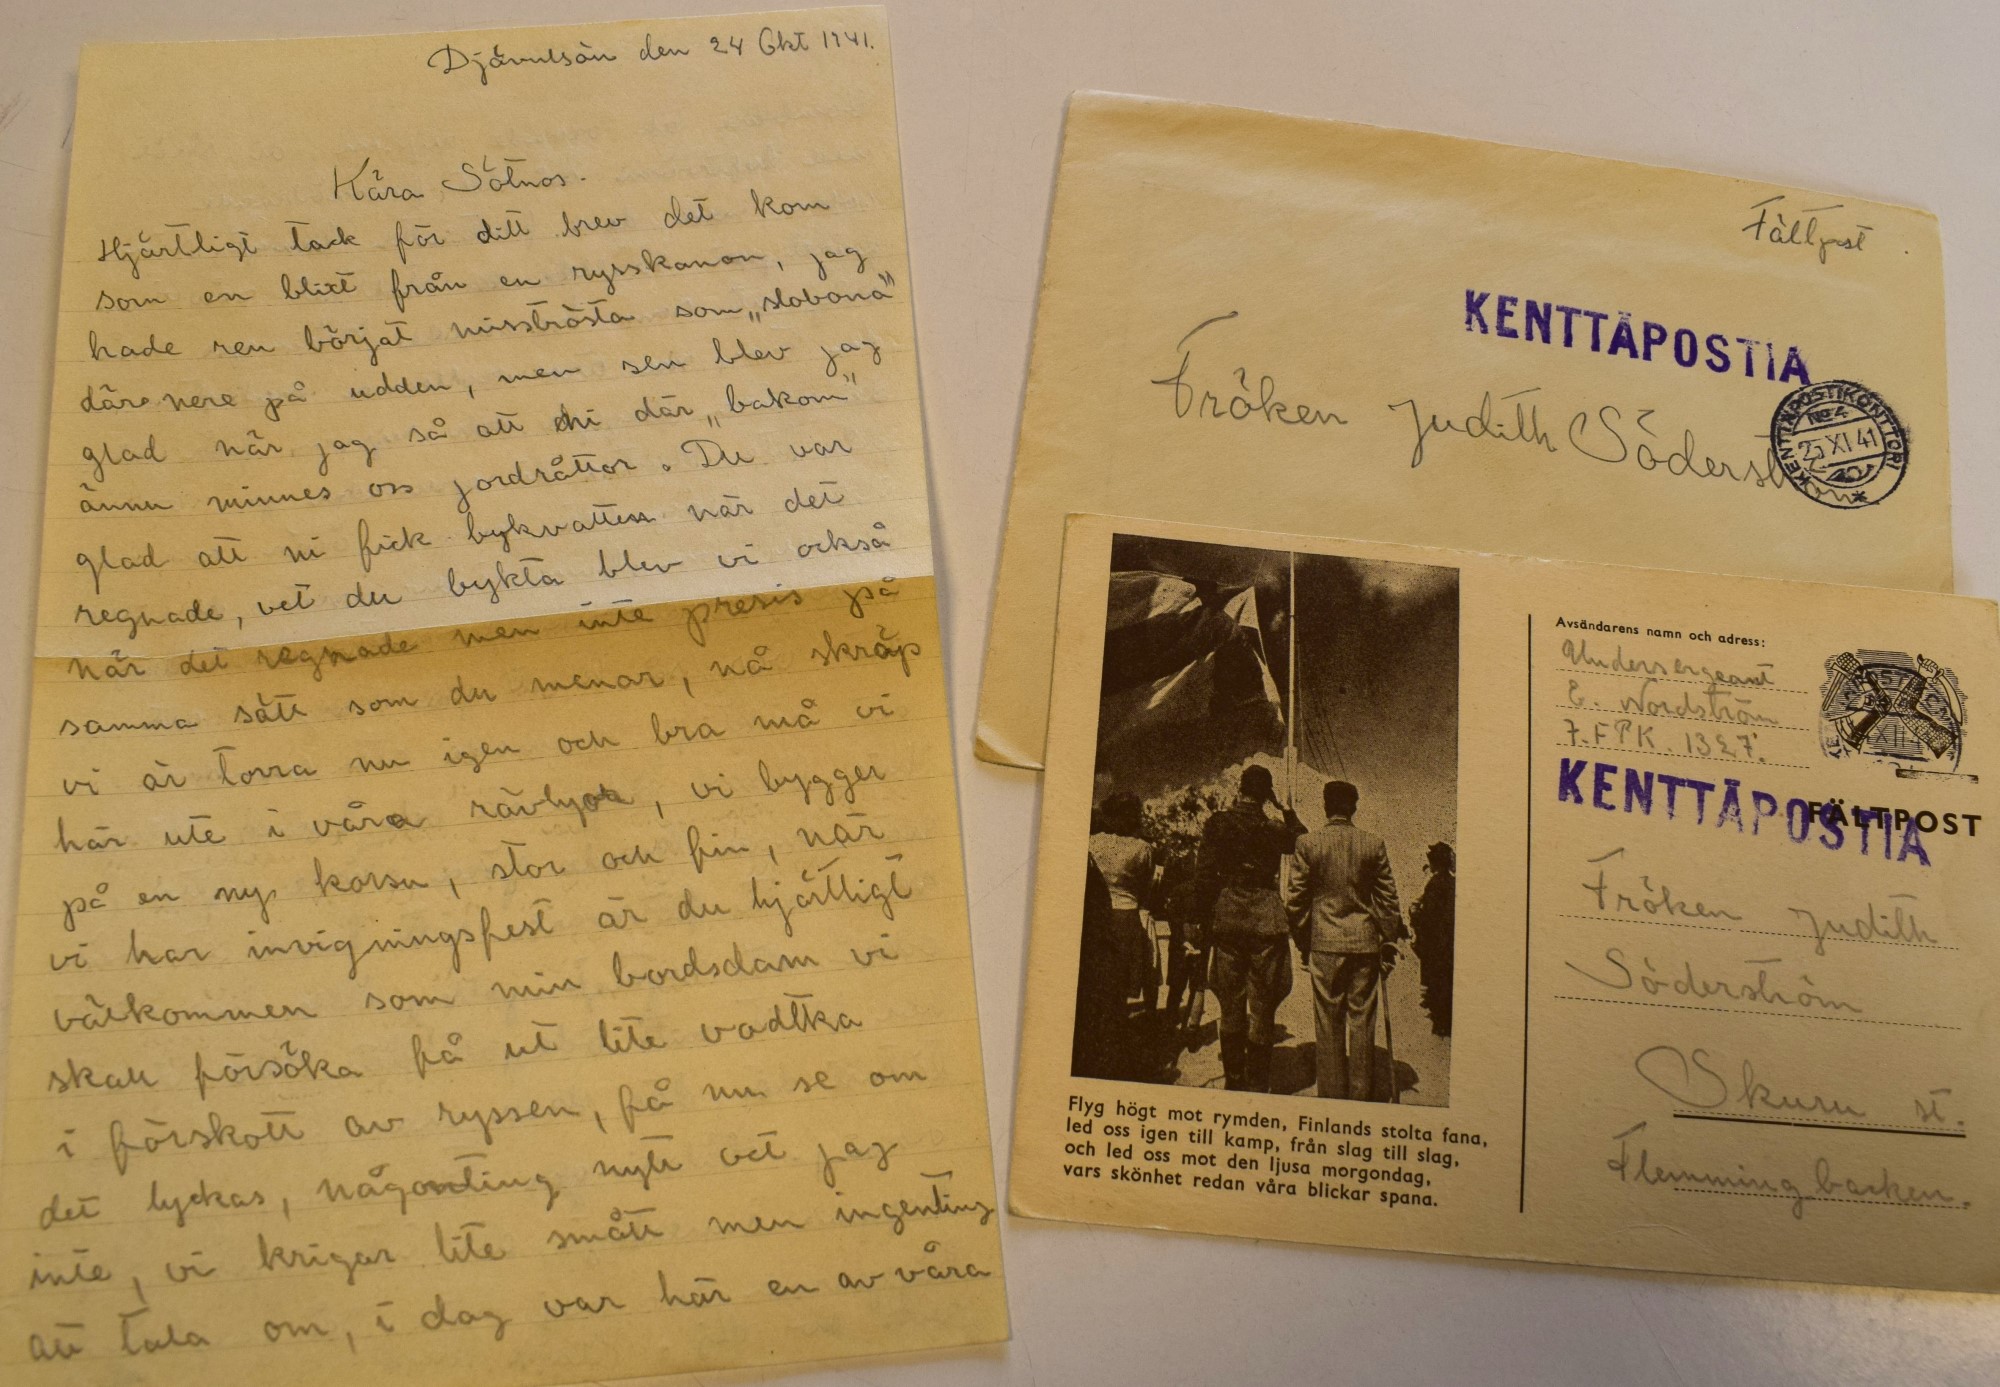 Djävulsön den 24 Okt 1941.
Kära Sötnos.
Hjärtligt tack för ditt brev det kom
som en blixt från en rysskanon, jag
hade ren börjat misströsta som „slobona"
däre nere på udden, men sen blev jag
glad när jag så att ni där „bakom"
ännu minnes oss jordråttor. Du var
glad att ni fick bykvatten när det
regnade, vet du bykta blev vi också
när det regnade men inte presis på
samma sätt som du menar, nå skräp
vi är torra nu igen och bra må vi
här ute i våra rävlyor, vi bygger
på en ny korsu, stor och fin, när
vi har invigningsfest är du hjärtligt
välkommen som min bordsdam vi
skall försöka få ut lite vodtka
i förskott av ryssen, få nu se om
det lyckas, någonting nytt vet jag
inte, vi krigar lite smått men ingenting
att tala om, i dag var här en av våra
Fältpost
KENTTÄPOSTIA
Fröken Judith Söderström
KENTTÄPOSTIKONTTORI
No 4
25 XI 41
Avsändarens namn och adress:
Undersergeant
E. Nordström
7.FPK. 1327.
KENTTÄPOSTIA
FÄLTPOST
Fröken Judith
Söderström
Skuru st.
Flemmingbacken.
Flyg högt mot rymden, Finlands stolta fana,
led oss igen till kamp, från slag till slag,
och led oss mot den ljusa morgondag,
vars skönhet redan våra blickar spana.